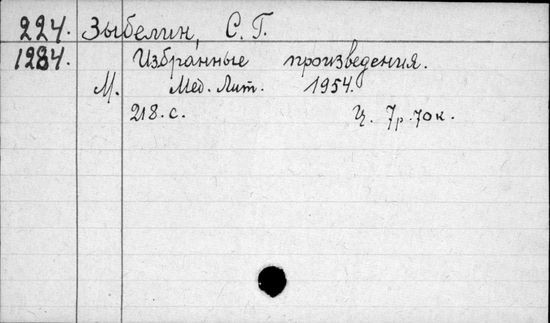 224. Зыбелин, С. Г.
1284. Избранные произведения.
М. Мед. Лит. 1954.
218. с. Ц. 7р.70к.